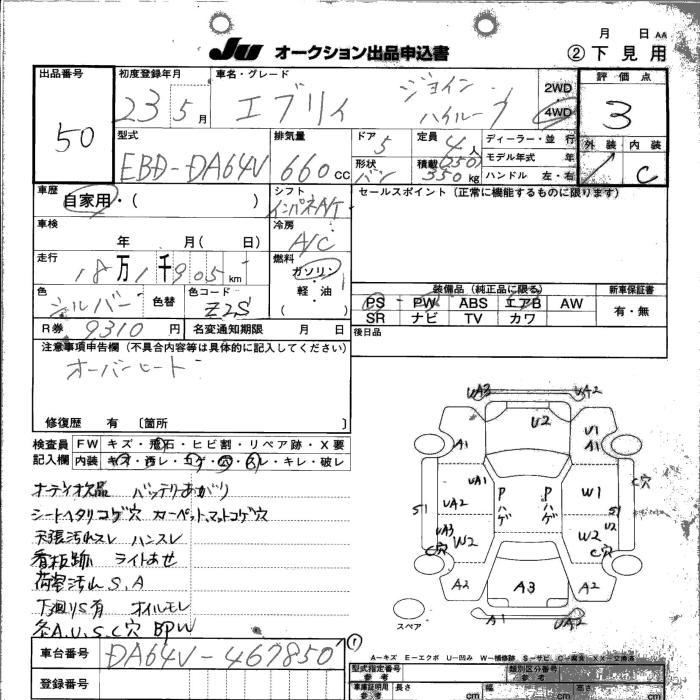 月 日 AA
JU オークション出品申込書 ②下見用
出品番号 初度登録年月 車名・グレード 評価点
50 23 5月 エブリィ ジョイン ハイルーフ 2WD 4WD 3
型式 排気量 ドア 定員 ディーラー・並行 外装 内装
EBD-DA64V 660cc 5 4人 モデル年式 年 C
形状 バン 積載 (250) 350kg ハンドル 左・右
車歴 シフト セールスポイント(正常に機能するものに限ります)
自家用・( ) インパネA/T
車検 冷房
年 月( 日) A/C
走行 燃料
18万1千905km ガソリン・
色 色替 色コード 軽・油 装備品(純正品に限る) 新車保証書
シルバー Z2S ( ) PS PW ABS エアB AW 有・無
SR ナビ TV カワ
R券 9310円 名変通知期限 月 日 後日品
注意事項申告欄(不具合内容等は具体的に記入してください)
オーバーヒート
修復歴 有 〔箇所 〕
検査員 FW キズ・飛石・ヒビ割・リペア跡・X要
記入欄 内装 キズ・・コゲ・穴・・キレ・破レ
オーディオ欠品 バッテリあがり
シートヘタリコゲ穴 カーペット、マットコゲ穴
天張汚れスレ ハンスレ
看板跡 ライトあせ
荷室汚れ S.A
下廻りS有 オイルモレ
各A.U.S.C穴 BPW
車台番号 DA64V-467850
登録番号
UA3 UA2
U2
A1 U1 A1
UA1 W1 C穴
UA2 Pハゲ Pハゲ
S1 S1
UA3 W2 U2 W2
C穴 C穴
A2 A3 A2
スペア A1 UA2
①
A-キズ E-エクボ U-凹み W-補修跡 S-サビ C-腐食 XX-交換済
型式指定番号 類別区分番号
参考 参考
車庫証明用 長さ 幅 高さ
参考 cm cm cm